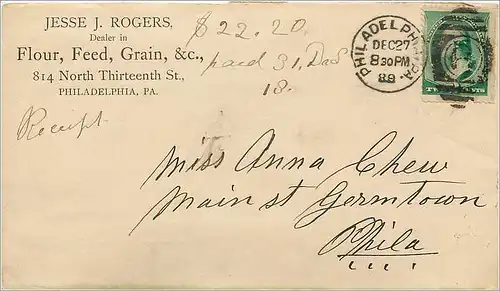 JESSE J. ROGERS,
Dealer in
Flour, Feed, Grain, &c.,
814 North Thirteenth St.,
PHILADELPHIA, PA.
$22.20
paid 31, Dec
18.
Receipt
PHILADELPHIA, PA.
DEC 27
8 30 PM
88
Miss Anna Chew
Main st Germtown
Phila